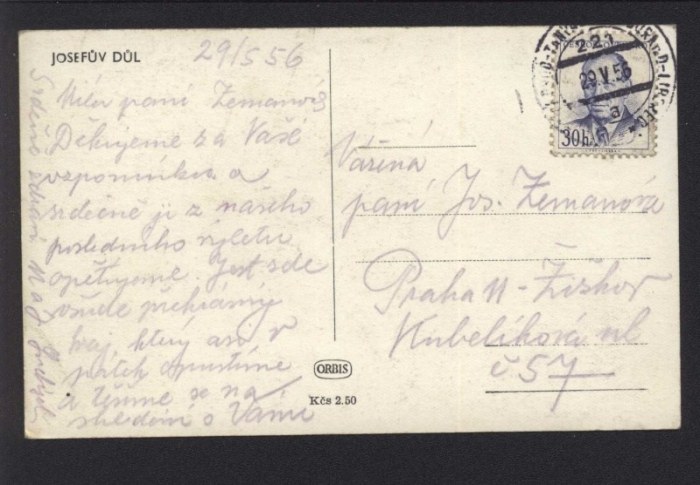 JOSEFŮV DŮL
29/5 56
Milá paní Zemanová
Děkujeme za Vaši
vzpomínku a
srdečně ji z našeho
posledního výletu
opětujeme. Jest zde
všude překrásný
kraj, který asi v
pátek opustíme
a těšíme se na
shledání s Vámi
Srdečně zdraví
Vážená
paní Jos. Zemanová
Praha 11 - Žižkov
Kubelíkova ul
č 57
ORBIS
Kčs 2.50
221
29.V.56
a
30h